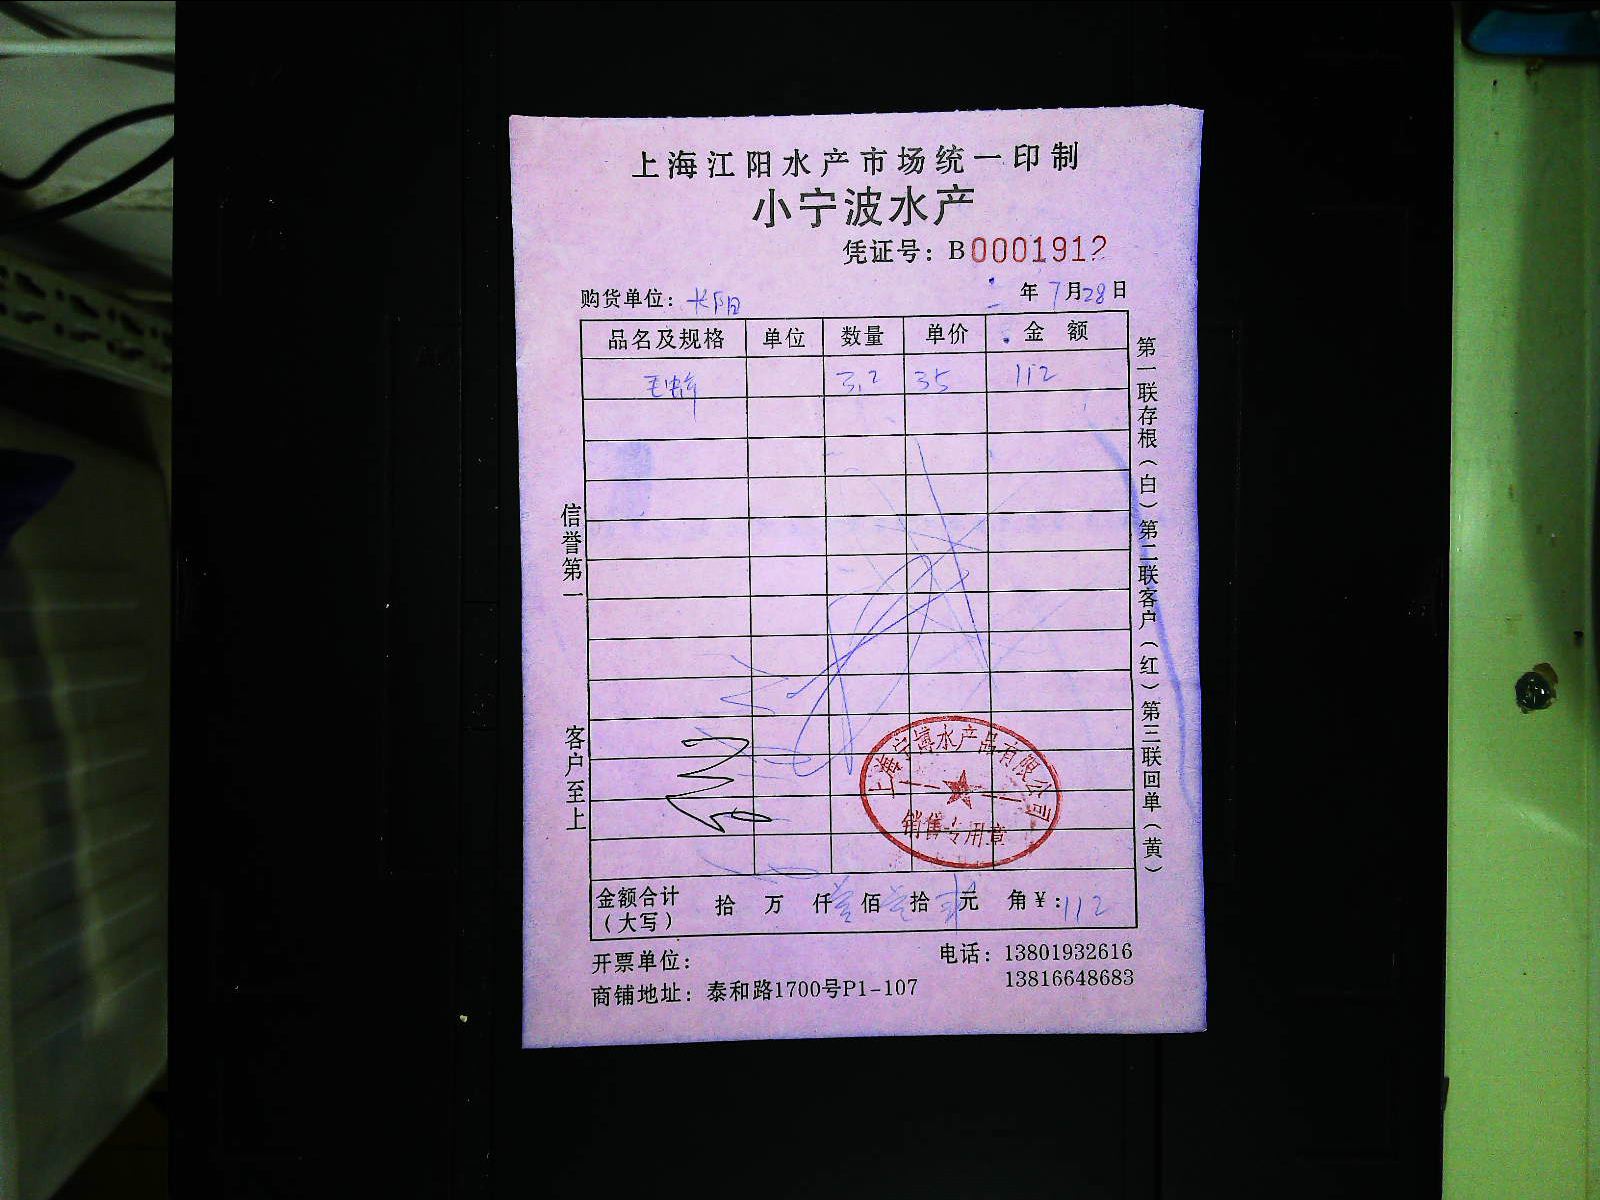 上海江阳水产市场统一印制
小宁波水产
凭证号：B0001912
购货单位：长阳 年7月28日
品名及规格 单位 数量 单价 金额
毛蚶 3.2 35 112
信誉第一
客户至上
第一联存根（白）第二联客户（红）第三联回单（黄）
上海宁博水产品有限公司
销售专用章
金额合计（大写） 拾 万 仟壹佰壹拾贰元 角¥：112
开票单位：
电话：13801932616
13816648683
商铺地址：泰和路1700号P1-107